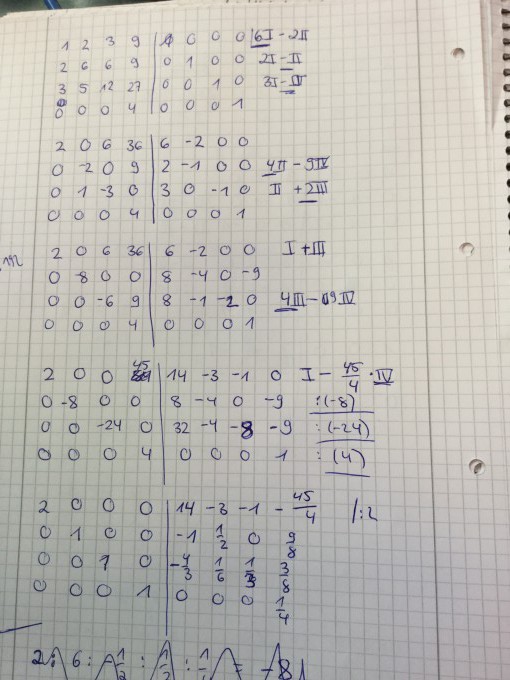 1 2 3 9 | 1 0 0 0 | 6I - 2II
2 6 6 9 | 0 1 0 0 2I - II
3 5 12 27 | 0 0 1 0 3I - III
0 0 0 4 | 0 0 0 1
2 0 6 36 | 6 -2 0 0
0 -2 0 9 | 2 -1 0 0 4II - 9IV
0 1 -3 0 | 3 0 -1 0 II + 2III
0 0 0 4 | 0 0 0 1
2 0 6 36 | 6 -2 0 0 I + III
0 -8 0 0 | 8 -4 0 -9
0 0 -6 9 | 8 -1 -2 0 4III - 9IV
0 0 0 4 | 0 0 0 1
2 0 0 45 | 14 -3 -1 0 I - 45/4 · IV
0 -8 0 0 | 8 -4 0 -9 :(-8)
0 0 -24 0 | 32 -4 -8 -9 :(-24)
0 0 0 4 | 0 0 0 1 :(4)
2 0 0 0 | 14 -3 -1 -45/4 /:2
0 1 0 0 | -1 1/2 0 9/8
0 0 1 0 | -4/3 1/6 1/3 3/8
0 0 0 1 | 0 0 0 1/4